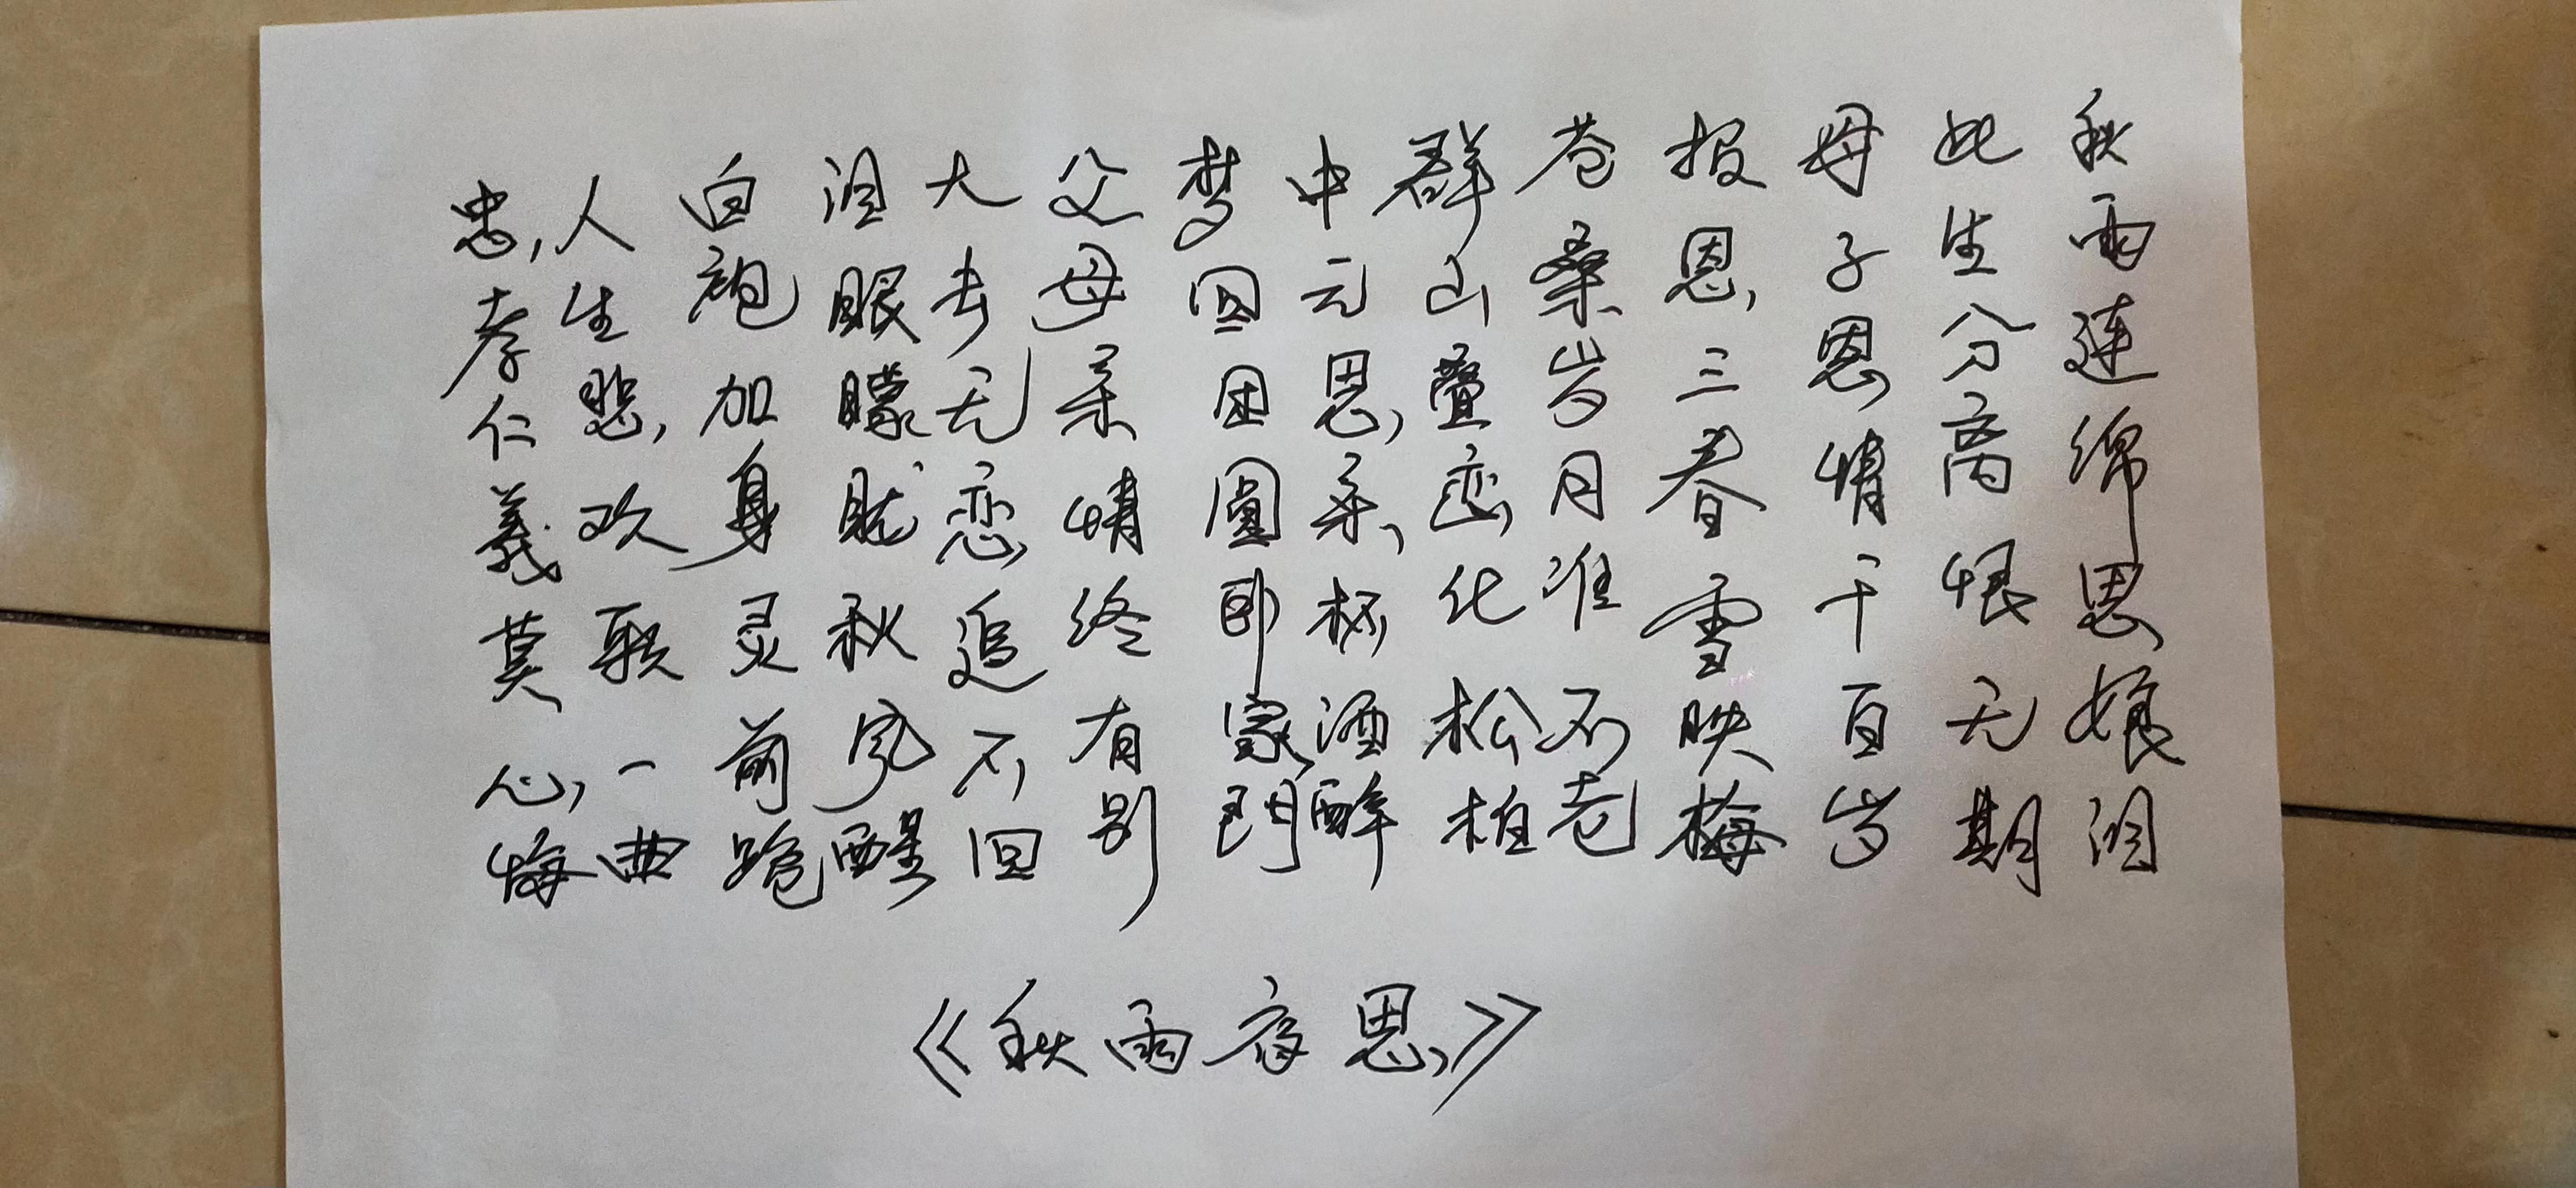 秋雨连绵思娘泪
此生分离恨无期
母子恩情千百岁
报恩三春雪映梅
苍桑岁月准不老
群山叠峦化松柏
中元思亲杯酒醉
梦回田園即家門
父母亲情终有别
大去无恋追不回
泪眼朦胧秋风醒
白袍加身灵前跪
人生悲欢歌一曲
忠孝仁義莫心悔
《秋雨夜思》